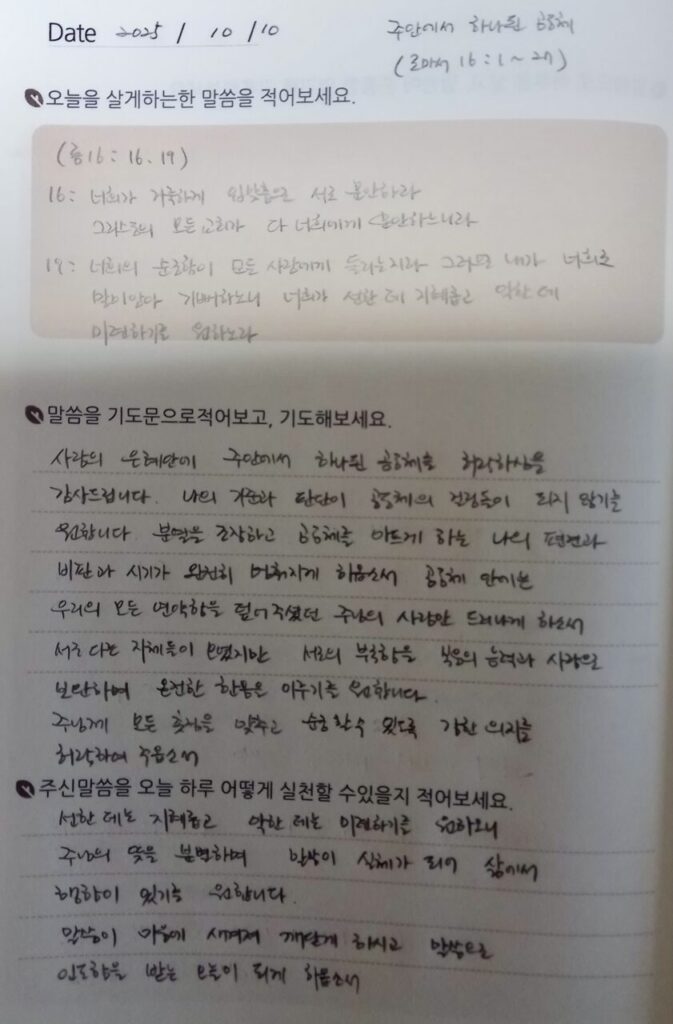 Date 2025 / 10 / 10
주안에서 하나된 공동체
(로마서 16:1~27)
오늘을 살게하는한 말씀을 적어보세요.
(롬16:16.19)
16: 너희가 거룩하게 입맞춤으로 서로 문안하라
그리스도의 모든 교회가 다 너희에게 문안하느니라
19: 너희의 순종함이 모든 사람에게 들리는지라 그러므로 내가 너희로
말미암아 기뻐하노니 너희가 선한 데 지혜롭고 악한 데
미련하기를 원하노라
말씀을 기도문으로적어보고, 기도해보세요.
사랑의 은혜안에 주안에서 하나된 공동체를 허락하심을
감사드립니다. 나의 기준과 판단이 공동체의 걸림돌이 되지 않기를
원합니다 분열을 조장하고 공동체를 아프게 하는 나의 편견과
비판과 시기가 완전히 멈춰지게 하옵소서 공동체 안에는
우리의 모든 연약함을 덮어주셨던 주님의 사랑만 드러나게 하소서
서로 다른 지체들이 모였지만 서로의 부족함을 복음의 능력과 사랑으로
보완하며 온전한 한몸을 이루기를 원합니다.
주님께 모든 초점을 맞추고 순종할수 있도록 강한 의지를
허락하여 주옵소서
주신말씀을 오늘 하루 어떻게 실천할 수있을지 적어보세요.
선한 데는 지혜롭고 악한 데는 미련하기를 원하오니
주님의 뜻을 분별하며 말씀이 실체가 되어 삶에서
행함이 있기를 원합니다.
말씀이 마음에 새겨져 깨닫게 하시고 말씀으로
인도함을 받는 오늘이 되게 하옵소서